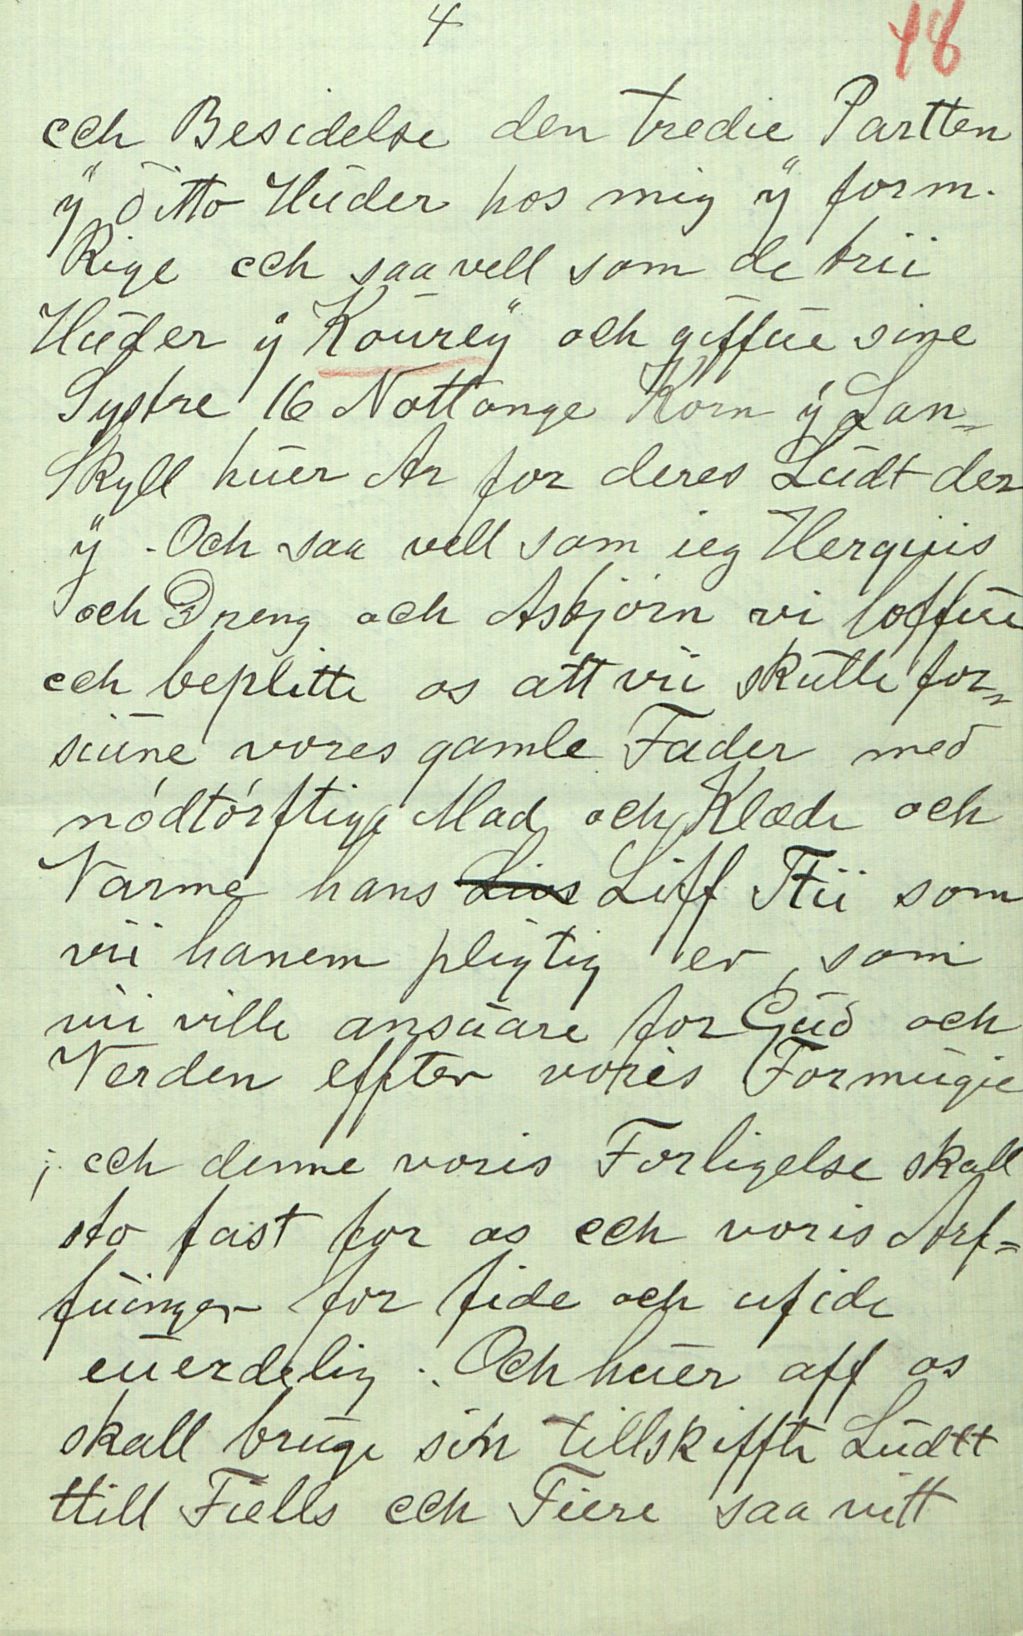 4
48
och Besidelse den tredie Partten
ÿ Otto Hŭder hos mig ÿ form.
Rige och saa vell som de trii
Hŭder ÿ Koŭreÿ och giffŭe sine
Systre 16 Nottonge Korn ÿ Lan=
Skyll hŭer Ar for deres Lŭdt der
ÿ. Och saa vell som ieg Hergiuis
och Dreng och Asbjörn vi loffŭe
och beplitte os att vii skŭlle for=
siŭne vores gamle Fader med
nódtórftige Mad och Klæde och
Varme hans Livs Liff Ttii som
vii hanem pligtig er, som
vii ville ansŭare for Gŭd och
Verden effter voris Formŭgie
; och denne voris Forligelse skall
sto fast for os och voris Arf=
fŭinger for fide och ufide
eŭerdelig. Och hŭer aff os
skall brŭge sin tillskiffte Lŭdtt
ttill Fiells och Fiere saa vitt